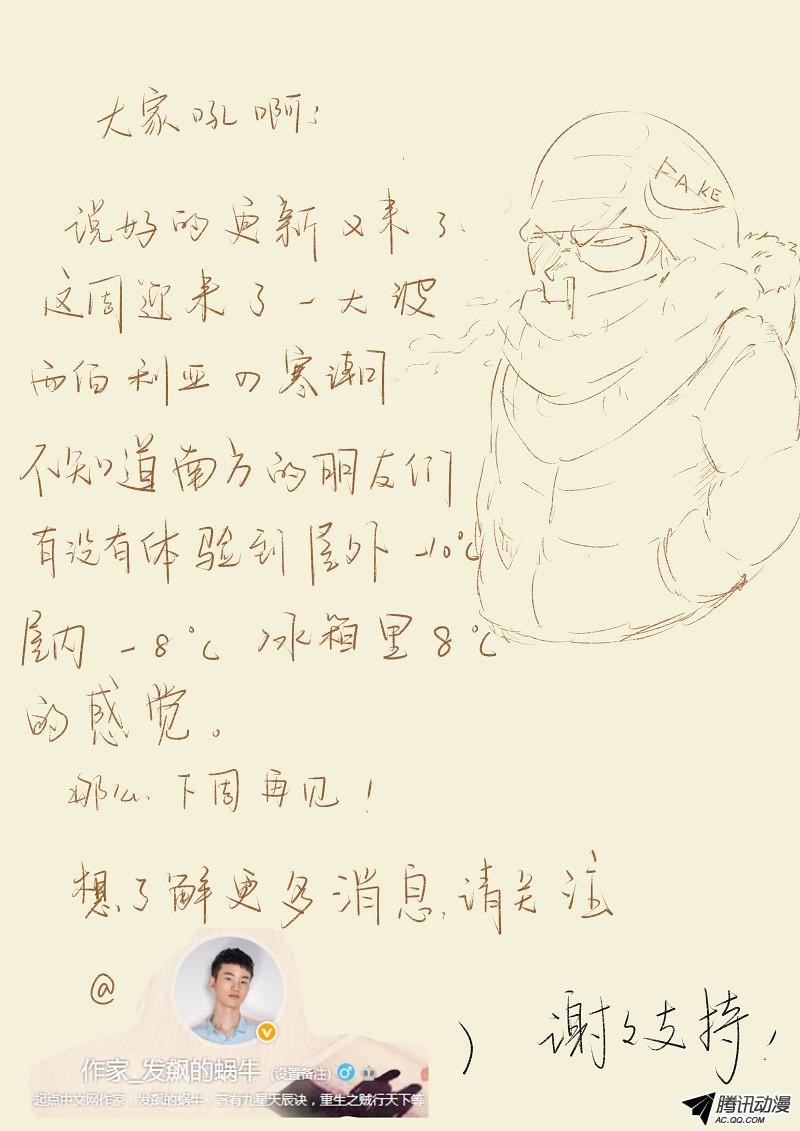 大家吼啊！
FAKE
说好的更新又来了
这周迎来了一大波
西伯利亚の寒潮
不知道南方的朋友们
有没有体验到屋外 -10℃
屋内 -8℃ 冰箱里 8℃
的感觉。
那么.下周再见！
想了解更多消息,请关注
@
作家_发飙的蜗牛 (设置备注)
起点中文网作家，发飙的蜗牛，著有九星天辰诀，重生之贼行天下等
)
谢々支持！
腾讯动漫
AC.QQ.COM